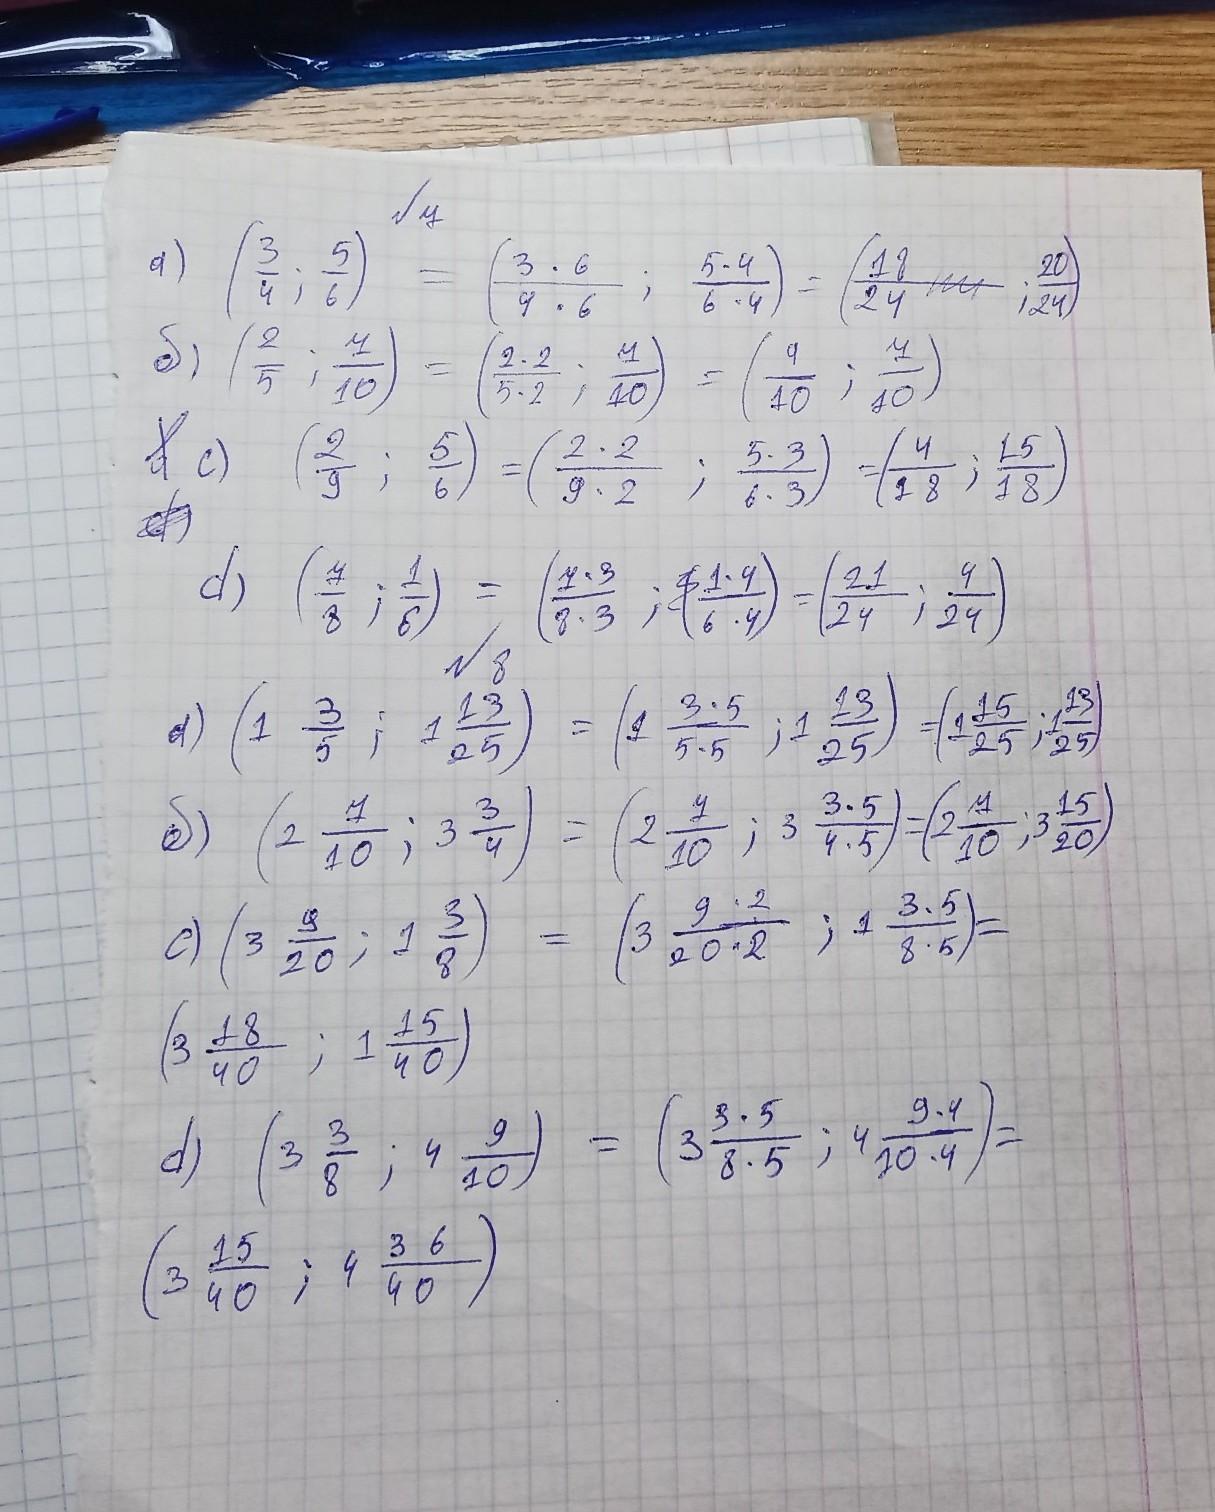 √7
а) (3/4 ; 5/6) = (3·6/4·6 ; 5·4/6·4) = (18/24 ; 20/24)
б) (2/5 ; 7/10) = (2·2/5·2 ; 7/10) = (4/10 ; 7/10)
c) (2/9 ; 5/6) = (2·2/9·2 ; 5·3/6·3) = (4/18 ; 15/18)
d) (7/8 ; 1/6) = (7·3/8·3 ; 1·4/6·4) = (21/24 ; 4/24)
√8
а) (1 3/5 ; 1 13/25) = (1 3·5/5·5 ; 1 13/25) = (1 15/25 ; 1 13/25)
б) (2 7/10 ; 3 3/4) = (2 7/10 ; 3 3·5/4·5) = (2 7/10 ; 3 15/20)
c) (3 9/20 ; 1 3/8) = (3 9·2/20·2 ; 1 3·5/8·5) =
(3 18/40 ; 1 15/40)
d) (3 3/8 ; 4 9/10) = (3 3·5/8·5 ; 4 9·4/10·4) =
(3 15/40 ; 4 36/40)